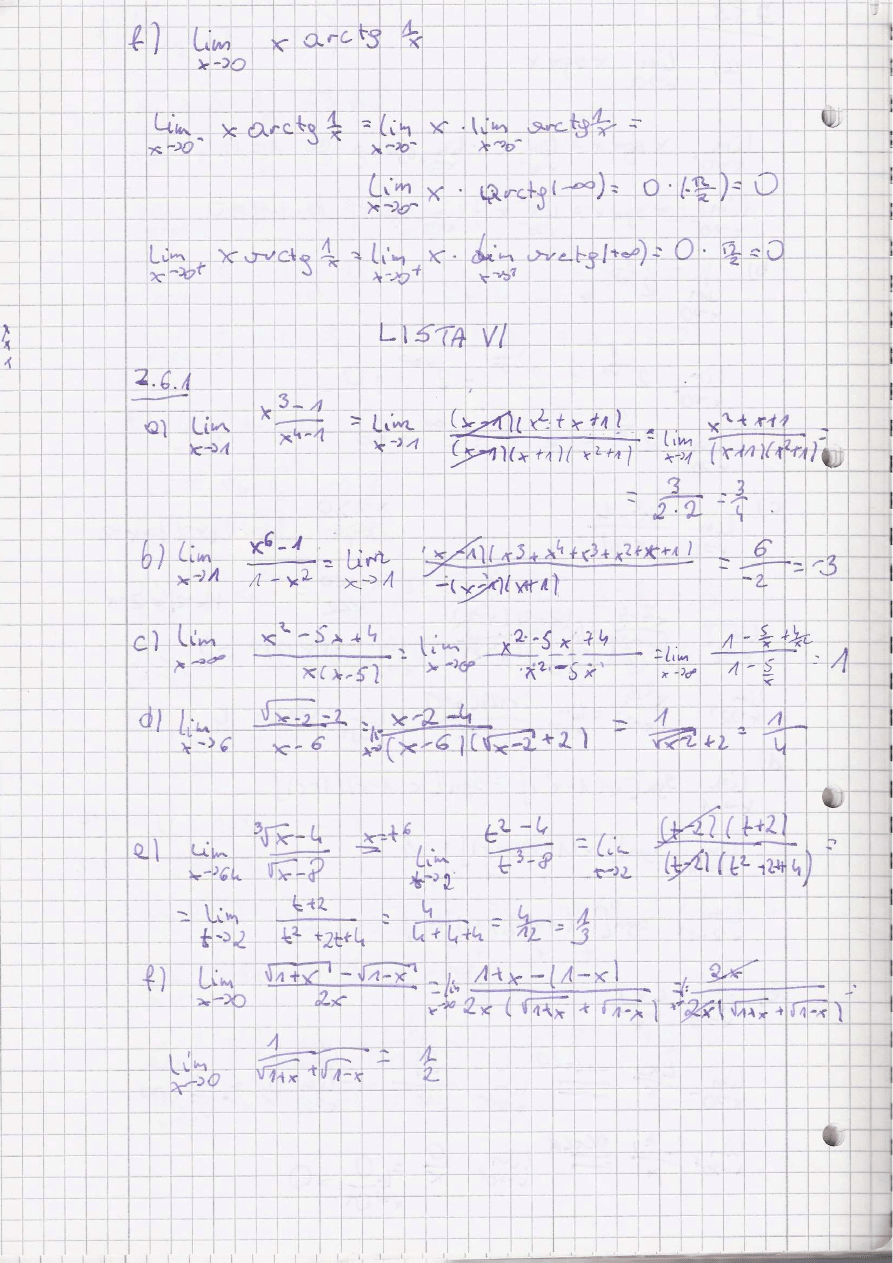 f) lim x→0 x arctg 1/x
lim x→0⁻ x arctg 1/x = lim x→0⁻ x · lim x→0⁻ arctg 1/x =
lim x→0⁻ x · arctg(-∞) = 0 · (-π/2) = 0
lim x→0⁺ x arctg 1/x = lim x→0⁺ x · lim x→0⁺ arctg(+∞) = 0 · π/2 = 0
LISTA VI
2.6.1
a) lim x→1 (x³-1)/(x⁴-1) = lim x→1 (x-1)(x²+x+1)/(x-1)(x+1)(x²+1) = lim x→1 (x²+x+1)/(x+1)(x²+1) =
= 3/(2·2) = 3/4.
b) lim x→1 (x⁶-1)/(1-x²) = lim x→1 (x-1)(x³+x⁴+x³+x²+x+1)/-(x-1)(x+1) = 6/-2 = -3
c) lim x→∞ (x²-5x+4)/x(x-5) = lim x→∞ (x²-5x+4)/(x²-5x) = lim x→∞ (1-5/x+4/x²)/(1-5/x) = 1
d) lim x→6 (√(x-2)-2)/(x-6) = lim (x-2-4)/(x-6)(√(x-2)+2) = 1/(√(x-2)+2) = 1/4
e) lim x→64 (³√x-4)/(√x-8) x=t⁶ = lim t→2 (t²-4)/(t³-8) = lim t→2 (t-2)(t+2)/(t-2)(t²+2t+4) =
= lim t→2 (t+2)/(t²+2t+4) = 4/(4+4+4) = 4/12 = 1/3
f) lim x→0 (√(1+x)-√(1-x))/2x = lim x→0 (1+x-(1-x))/2x(√(1+x)+√(1-x)) = lim 2x/2x(√(1+x)+√(1-x)) =
lim x→0 1/(√(1+x)+√(1-x)) = 1/2